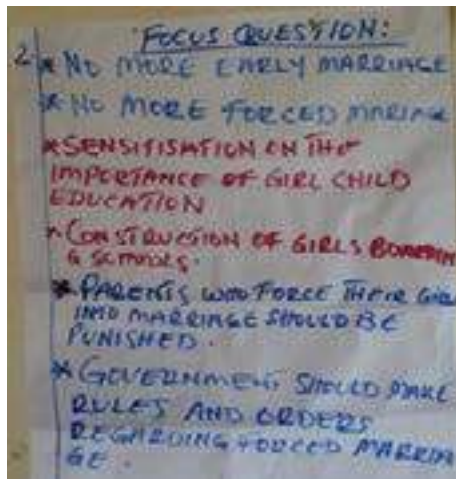 FOCUS QUESTION:
2 * NO MORE EARLY MARRIAGE
* NO MORE FORCED MARIAGE
* SENSITISATION ON THE
IMPORTANCE OF GIRL CHILD
EDUCATION
* CONSTRUCTION OF GIRLS BOARDIN
G SCHOOLS.
* PARENTS WHO FORCE THEIR GIRL
INTO MARRIAGE SHOULD BE
PUNISHED.
* GOVERNMENT SHOULD MAKE
RULES AND ORDERS
REGARDING FORCED MARRIA
GE.